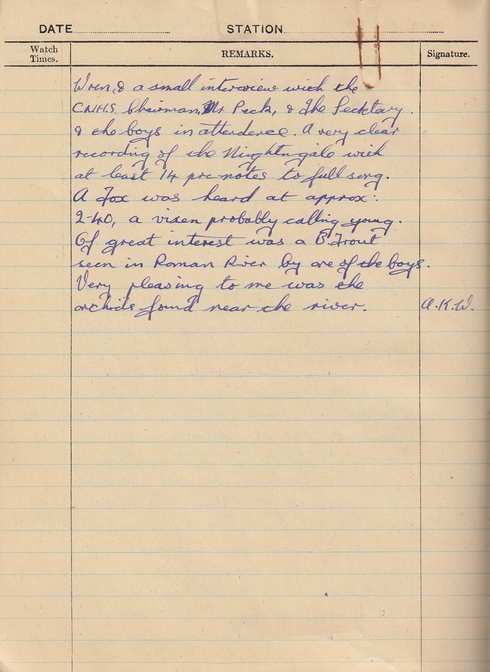 DATE STATION
Watch Times. REMARKS. Signature.
Wren, & a small interview with the
C.N.H.S. Chairman, Mr Peck, & The Secketary.
& the boys in attendence. A very clear
recording of the Ninghtngale with
at least 14 pre-notes to full song.
A Fox was heard at approx:
2-40, a vixen probably calling young.
Of great interest was a B Trout
seen in Roman River by one of the boys.
Very pleasing to me was the
orchids found near the river. A.K.W.